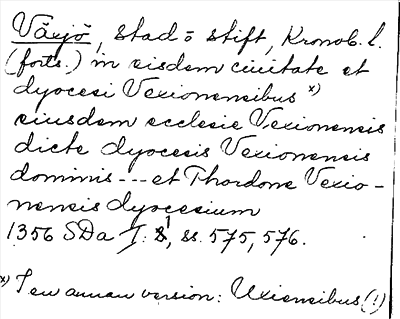 Växjö, stad o stift, Kronob. l.
(forts.) in eisdem ciuitate et
dyocesi Vexionensibus x)
eiusdem ecclesie Vexionensis
dicte dyocesis Vexionensis
dominis --- et Thordone Vexio-
nensis dyocesium
1356 SDa I:1, ss. 575, 576.
x) I en annan version: Uxiensibus (!)